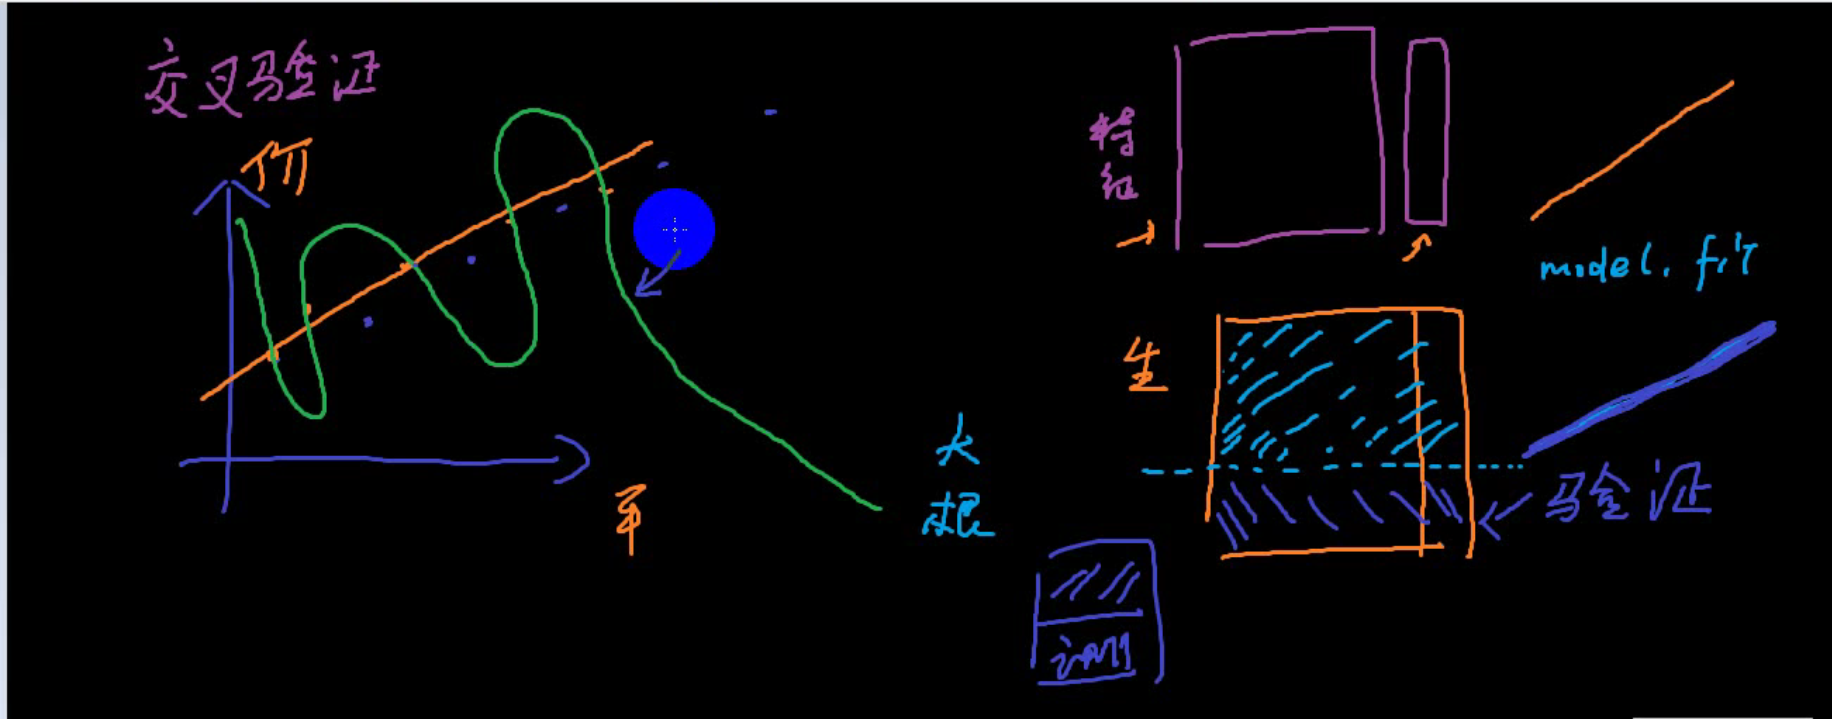 交叉验证
价
平
大
根
特
征
model.fit
生
验证
训